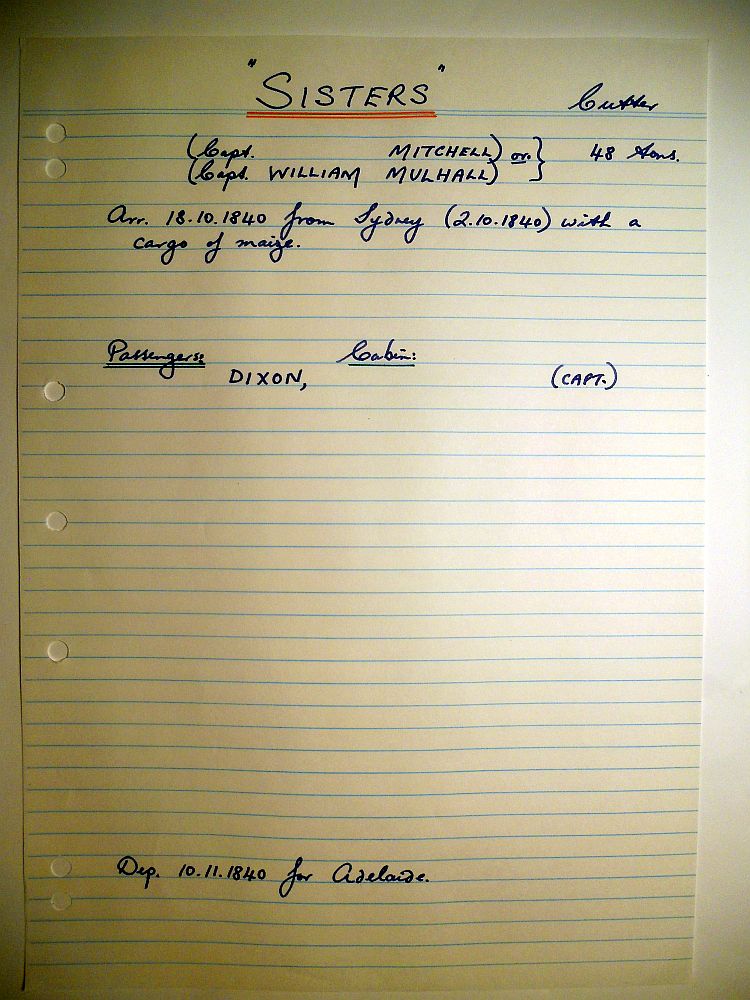 "SISTERS"
Cutter
(Capt. MITCHELL) or } 48 Tons.
(Capt. WILLIAM MULHALL)
Arr. 18.10.1840 from Sydney (2.10.1840) with a
cargo of maize.
Passengers: Cabin:
DIXON, (CAPT.)
Dep. 10.11.1840 for Adelaide.